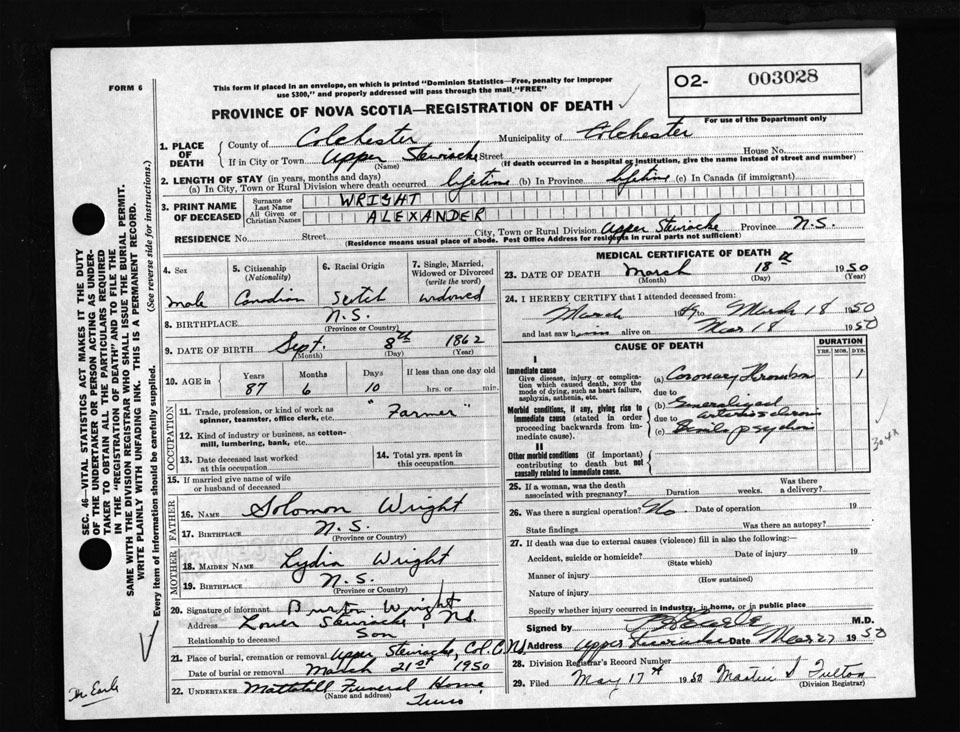 FORM 6
This form if placed in an envelope, on which is printed "Dominion Statistics—Free, penalty for improper
use $300," and properly addressed will pass through the mail "FREE"
O2- 003028
For use of the Department only
PROVINCE OF NOVA SCOTIA—REGISTRATION OF DEATH
1. PLACE OF DEATH
County of Colchester Municipality of Colchester
If in City or Town Upper Stewiacke Street House No.
(Name) (If death occurred in a hospital or institution, give the name instead of street and number)
2. LENGTH OF STAY (in years, months and days)
(a) In City, Town or Rural Division where death occurred lifetime (b) In Province lifetime (c) In Canada (if immigrant)
3. PRINT NAME OF DECEASED
Surname or Last Name WRIGHT
All Given or Christian Names ALEXANDER
RESIDENCE No. Street City, Town or Rural Division Upper Stewiacke Province N.S.
(Residence means usual place of abode. Post Office Address for residents in rural parts not sufficient)
4. Sex
male
5. Citizenship
(Nationality)
Canadian
6. Racial Origin
Scotch
7. Single, Married,
Widowed or Divorced
(write the word)
widowed
8. BIRTHPLACE N.S.
(Province or Country)
9. DATE OF BIRTH Sept. 8th 1862
(Month) (Day) (Year)
10. AGE in Years Months Days If less than one day old
87 6 10 hrs. or min.
OCCUPATION
11. Trade, profession, or kind of work as
spinner, teamster, office clerk, etc. "Farmer"
12. Kind of industry or business, as cotton-
mill, lumbering, bank, etc.
13. Date deceased last worked
at this occupation
14. Total yrs. spent in
this occupation
15. If married give name of wife
or husband of deceased
FATHER
16. NAME Solomon Wright
17. BIRTHPLACE N.S.
(Province or Country)
MOTHER
18. MAIDEN NAME Lydia Wright
19. BIRTHPLACE N.S.
(Province or Country)
20. Signature of informant Burton Wright
Address Lower Stewiacke, N.S.
Relationship to deceased Son
21. Place of burial, cremation or removal Upper Stewiacke, Col. C. N.S.
Date of burial or removal March 21st 1950
22. UNDERTAKER Funeral Home,
(Name and address) Truro
MEDICAL CERTIFICATE OF DEATH
23. DATE OF DEATH March 18th 1950
(Month) (Day)
24. I HEREBY CERTIFY that I attended deceased from:
March 1949 to March 18 1950
and last saw him alive on Mar 18 1950
CAUSE OF DEATH
DURATION
YRS. MOS. DYS.
I
Immediate cause
Give disease, injury or complica-
tion which caused death, not the
mode of dying, such as heart failure,
asphyxia, asthenia, etc.
(a) Coronary Thrombosis 1
due to
Morbid conditions, if any, giving rise to
immediate cause (stated in order
proceeding backwards from im-
mediate cause).
(b) Generalized arteriosclerosis
due to
(c) Senile psychosis
304X
II
Other morbid conditions (if important)
contributing to death but not
causally related to immediate cause.
25. If a woman, was the death
associated with pregnancy? Duration weeks. Was there
a delivery?
26. Was there a surgical operation? No Date of operation 19
State findings Was there an autopsy?
27. If death was due to external causes (violence) fill in also the following:
Accident, suicide or homicide? Date of injury 19
(State which)
Manner of injury
(How sustained)
Nature of injury
Specify whether injury occurred in industry, in home, or in public place
Signed by M.D.
Address Upper Stewiacke Date Mar 27 1950
28. Division Registrar's Record Number
29. Filed May 17th 1950 Martin S Fulton
(Division Registrar)
SEC. 46—VITAL STATISTICS ACT MAKES IT THE DUTY
OF THE UNDERTAKER OR PERSON ACTING AS UNDER-
TAKER TO OBTAIN ALL THE PARTICULARS REQUIRED
IN THE "REGISTRATION OF DEATH" AND TO FILE THE
SAME WITH THE DIVISION REGISTRAR WHO SHALL ISSUE THE BURIAL PERMIT.
WRITE PLAINLY WITH UNFADING INK. THIS IS A PERMANENT RECORD.
Every item of information should be carefully supplied. (See reverse side for instructions.)
Dr Earle